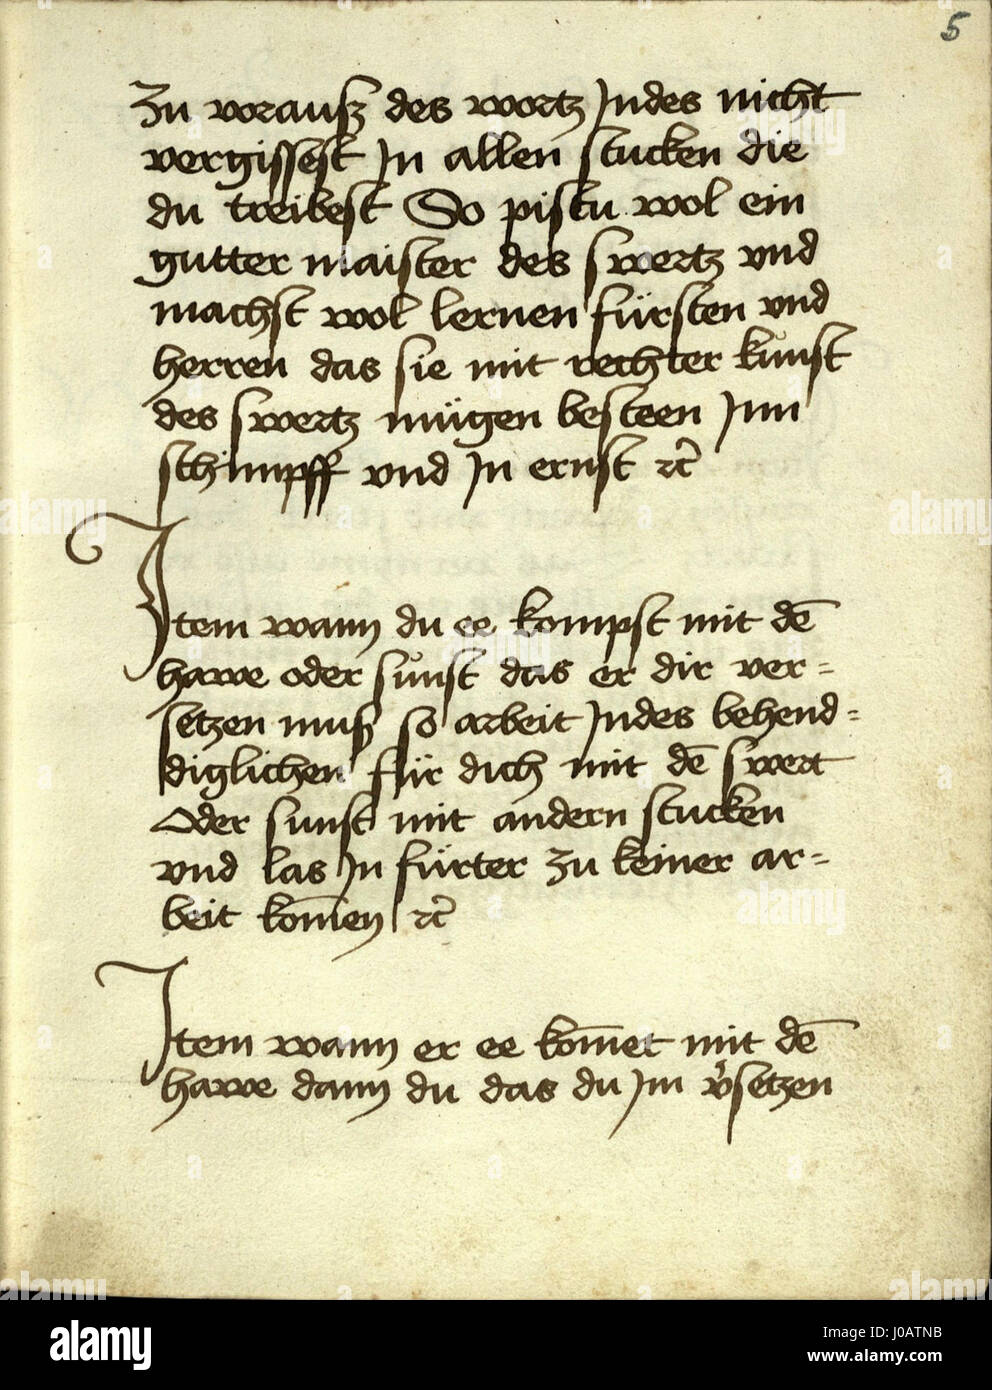 5
Zu vorausz des wortz Indes nicht
vergissest In allen stucken die
du treibest So pistu wol ein
gutter maister des swertz vnd
machst wol lernen fürsten vnd
herren das sie mit rechter kunst
des swertz mügen besteen Inn
schimpff vnd In ernst ꝛc̃
Item wann du ee kompst mit dē
hawe oder sunst das er dir ver=
setzen muß so arbeit Indes behend=
diglichen für dich mit dē swert
Oder sunst mit andern stucken
vnd las In fürter zu keiner ar=
beit kom̄en ꝛc̃
Item wann er ee kom̄et mit dē
hawe dann du das du Im v̾setzen
alamy
Image ID: J0ATNB
www.alamy.com